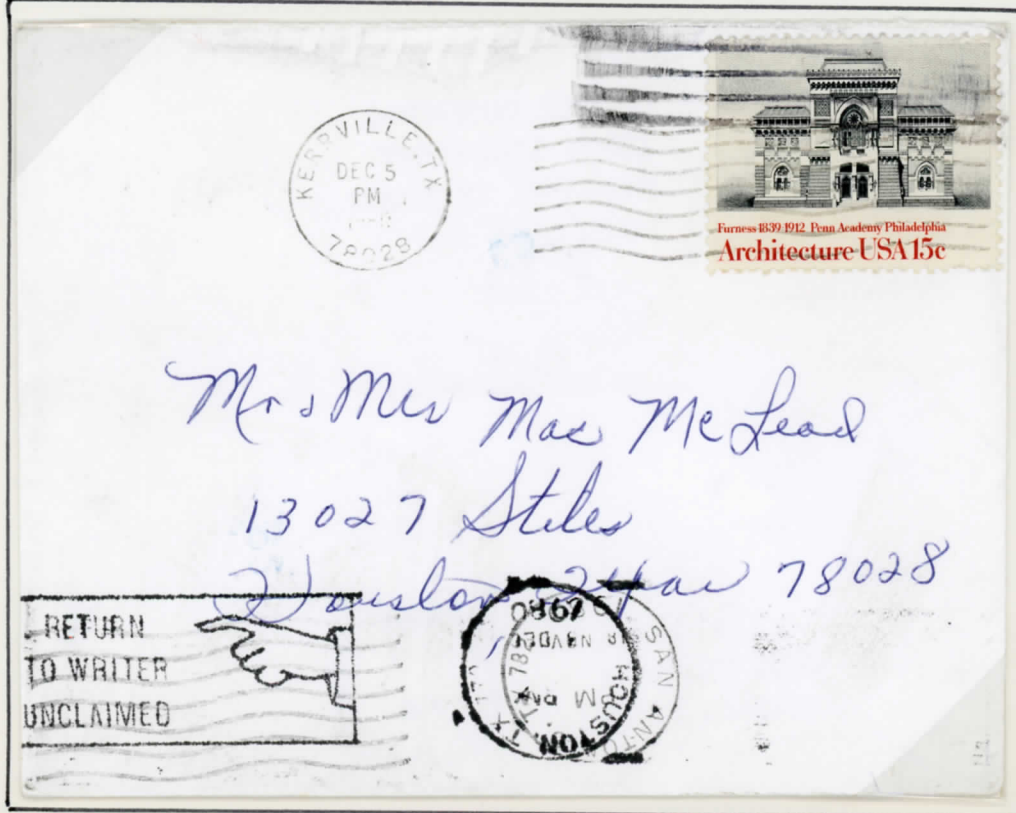 KERRVILLE, TX
DEC 5
PM
78028
Furness 1839-1912 Penn Academy Philadelphia
Architecture USA 15c
Mr & Mrs Mac McLead
13027 Stiles
Houston Texas 78028
RETURN
TO WRITER
UNCLAIMED
SAN ANTO
HOUSTON, TX
PM